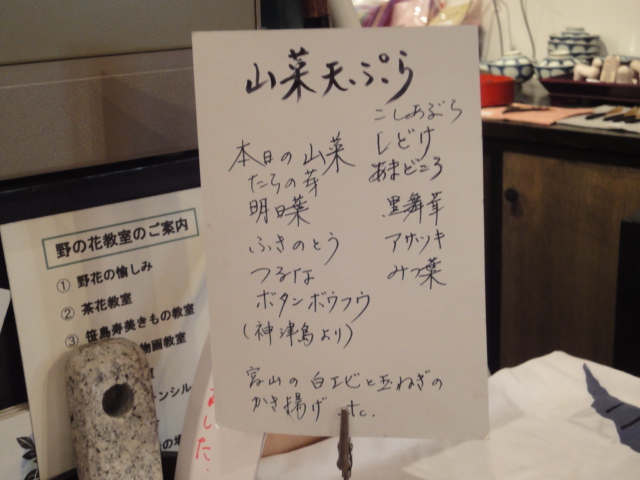 山菜天ぷら
本日の山菜
たらの芽
明日葉
ふきのとう
つるな
ボタンボウフウ
(神津島より)
こしあぶら
しどけ
あまどころ
黒舞茸
アサツキ
みつ葉
富山の白エビと玉ねぎの
かき揚げ etc.
野の花教室のご案内
① 野花の愉しみ
② 茶花教室
③ 笹島寿美きもの教室
物画教室
ンシル
ました.